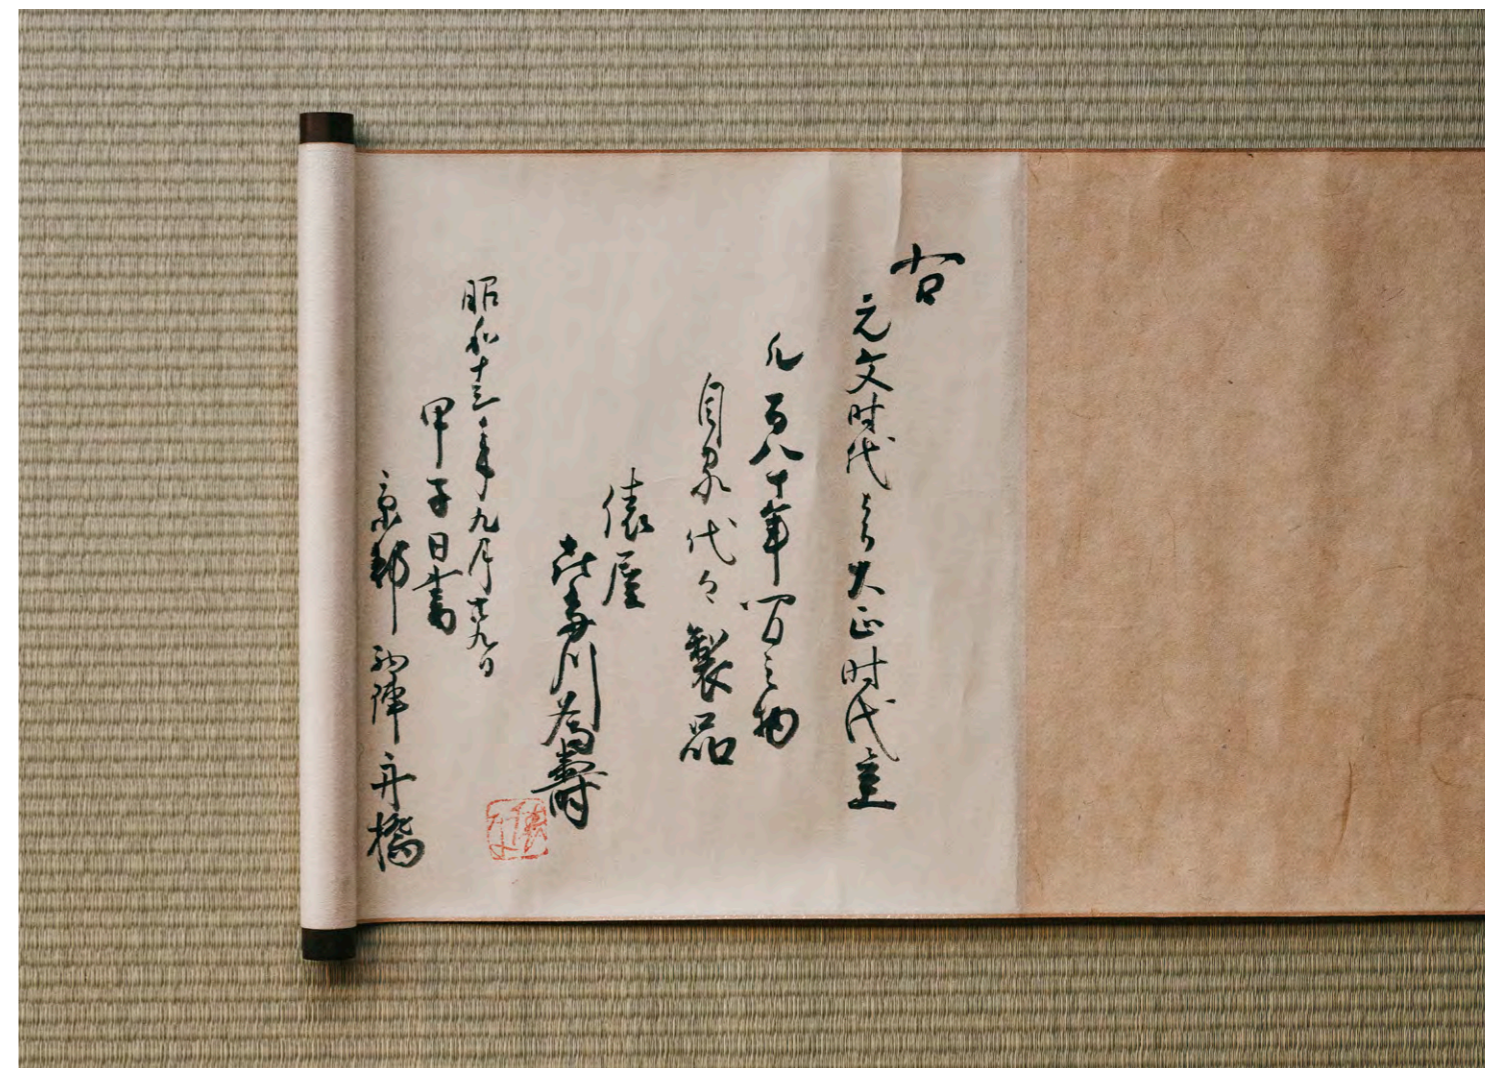 右
元文时代より大正时代迄
凡百八十年间之物
自家代々製品
俵屋
喜多川為壽
昭和十三年九月廿九日
甲子日書
京都西陣舟橋